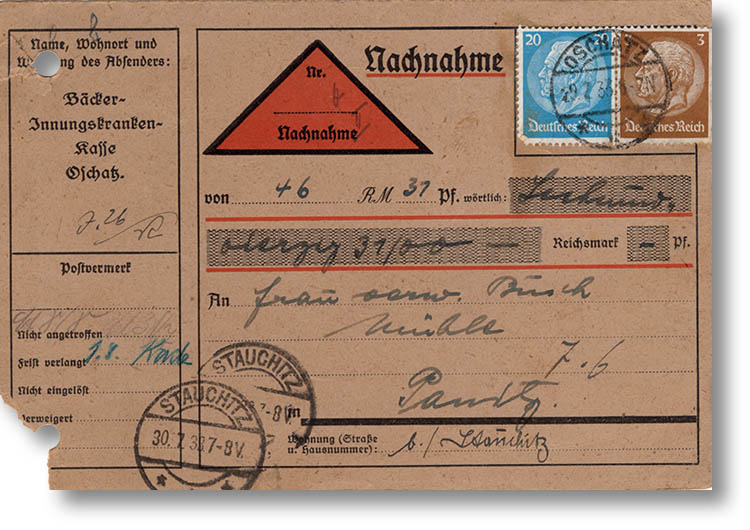 Name, Wohnort und
Wohnung des Absenders:
Bäcker-
Innungskranken-
Kasse
Oschatz.
7.26
Postvermerk
Nicht angetroffen
Frist verlangt 1.8.
Nicht eingelöst
Verweigert
Nr.
Nachnahme
Nachnahme
20
3
Deutsches Reich
Deutsches Reich
OSCHATZ
von 46 RM 31 Pf. wörtlich: Sechsund-
vierzig 31/00 — Reichsmark — Pf.
An Frau verw. Busch
Mühle
7.6
Panitz
in
Wohnung (Straße
u. Hausnummer): b./ Stauchitz
STAUCHITZ
STAUCHITZ
30.7.36.7-8V.